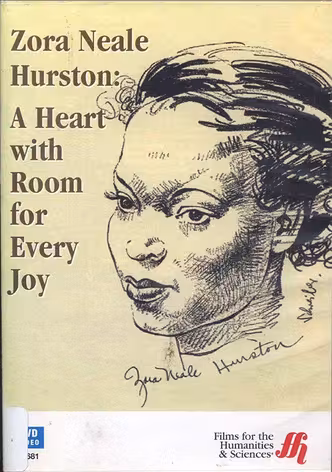 Zora Neale
Hurston:
A Heart
with
Room
for
Every
Joy
Zora Neale Hurston
Films for the
Humanities
& Sciences
ffh
681